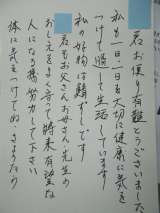 君お便り有難とうございました
私も一日一日を大切に健康に気を
つけて過して生活しています
私の好物は鯖ずしです
君もお父さんお母さん先生の
おしえをよく守って将来有望な
人になる様努力して下さい
体に気をつけてねさようなら